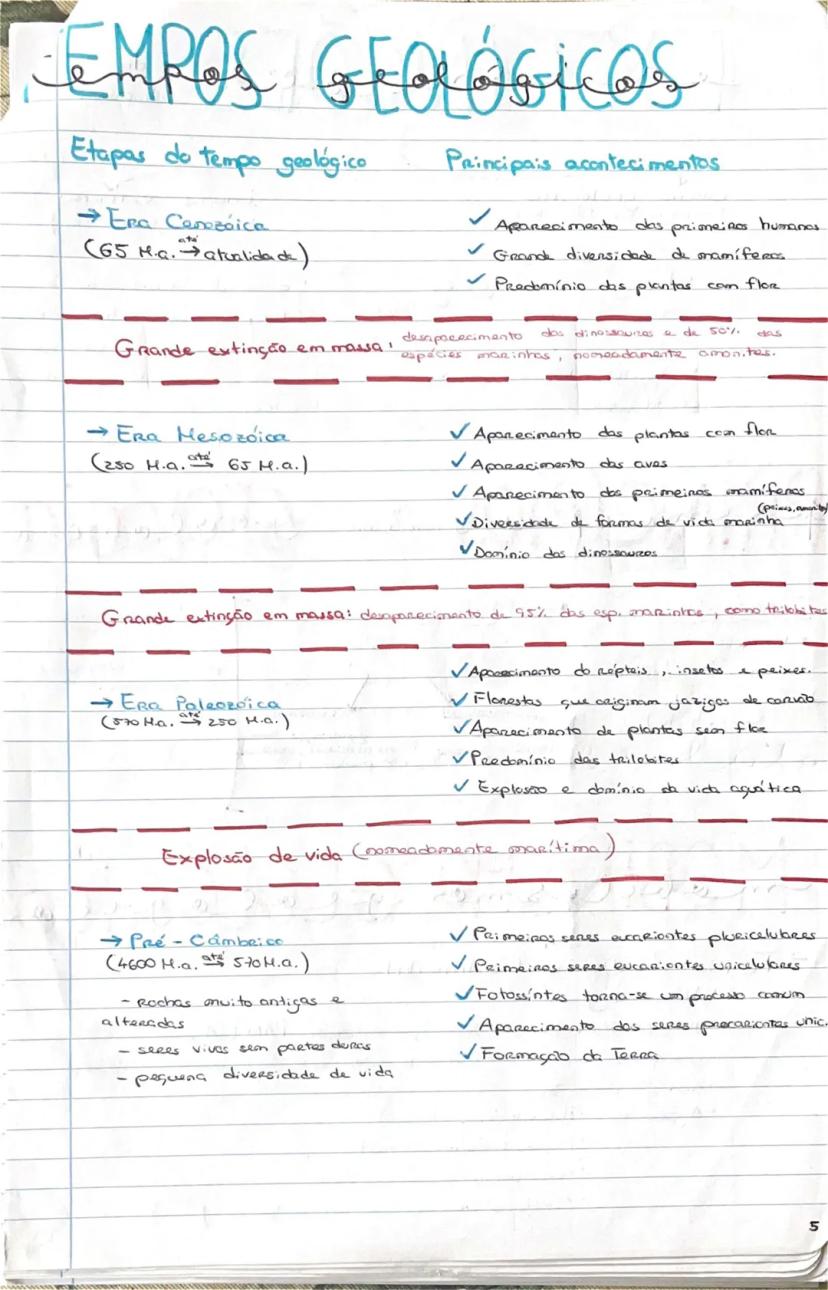 EMPOS GEOLÓGICOS
empos geológicos
Etapas do tempo geológico
Principais acontecimentos
→ Era Cenozóica
(65 M.a. até→ atualidade)
✓ Aparecimento dos primeiros humanos
✓ Grande diversidade de mamíferos
✓ Predomínio das plantas com flor
Grande extinção em massa: desaparecimento dos dinossauros e de 50% das
espécies marinhas, nomeadamente amonites.
→ Era Mesozóica
(250 M.a. até→ 65 M.a.)
✓ Aparecimento das plantas com flor
✓ Aparecimento das aves
✓ Aparecimento dos primeiros mamíferos
✓ Diversidade de formas de vida marinha
(peixes, amonites)
✓ Domínio dos dinossauros
Grande extinção em massa: desaparecimento de 95% das esp. marinhas, como trilobites
→ Era Paleozóica
(570 M.a. até→ 250 M.a.)
✓ Aparecimento do répteis, insetos e peixes.
✓ Florestas que originam jazigos de carvão
✓ Aparecimento de plantas sem flor
✓ Predomínio das trilobites
✓ Explosão e domínio da vida aquática
Explosão de vida (nomeadamente marítima)
→ Pré - Câmbrico
(4600 M.a. até→ 570 M.a.)
- rochas muito antigas e
alteradas
- seres vivos sem partes duras
- pequena diversidade de vida
✓ Primeiros seres eucariontes pluricelulares
✓ Primeiros seres eucariontes unicelulares
✓ Fotossíntes torna-se um processo comum
✓ Aparecimento dos seres procariontes unic.
✓ Formação da Terra
5